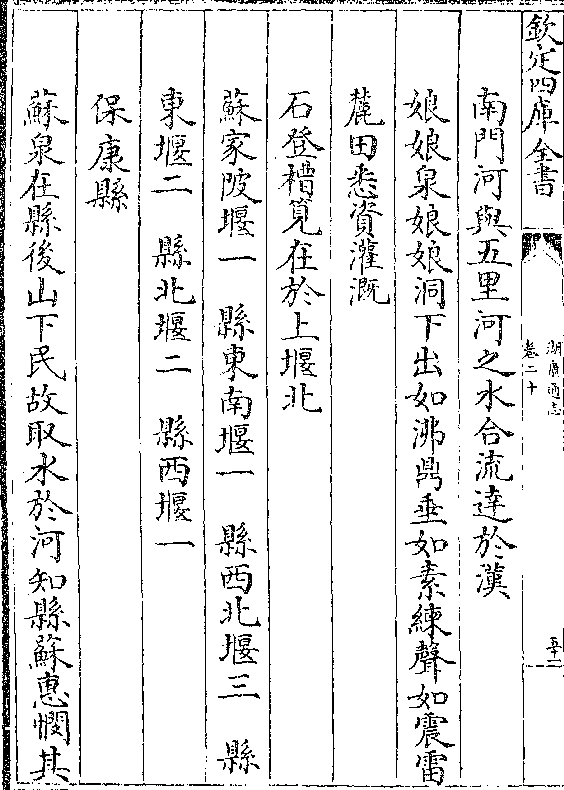 欽定四庫全書
湖廣通志
卷二十
南門河與五里河之水合流達於漢
娘娘泉娘娘洞下出如沸鼎垂如素練聲如震雷
麓田悉資灌溉
石登槽筧在於上堰北
蘇家陂堰一　縣東南堰一　縣西北堰三　縣
東堰二　縣北堰二　縣西堰一
保康縣
蘇泉在縣後山下民故取水於河知縣蘇惠憫其